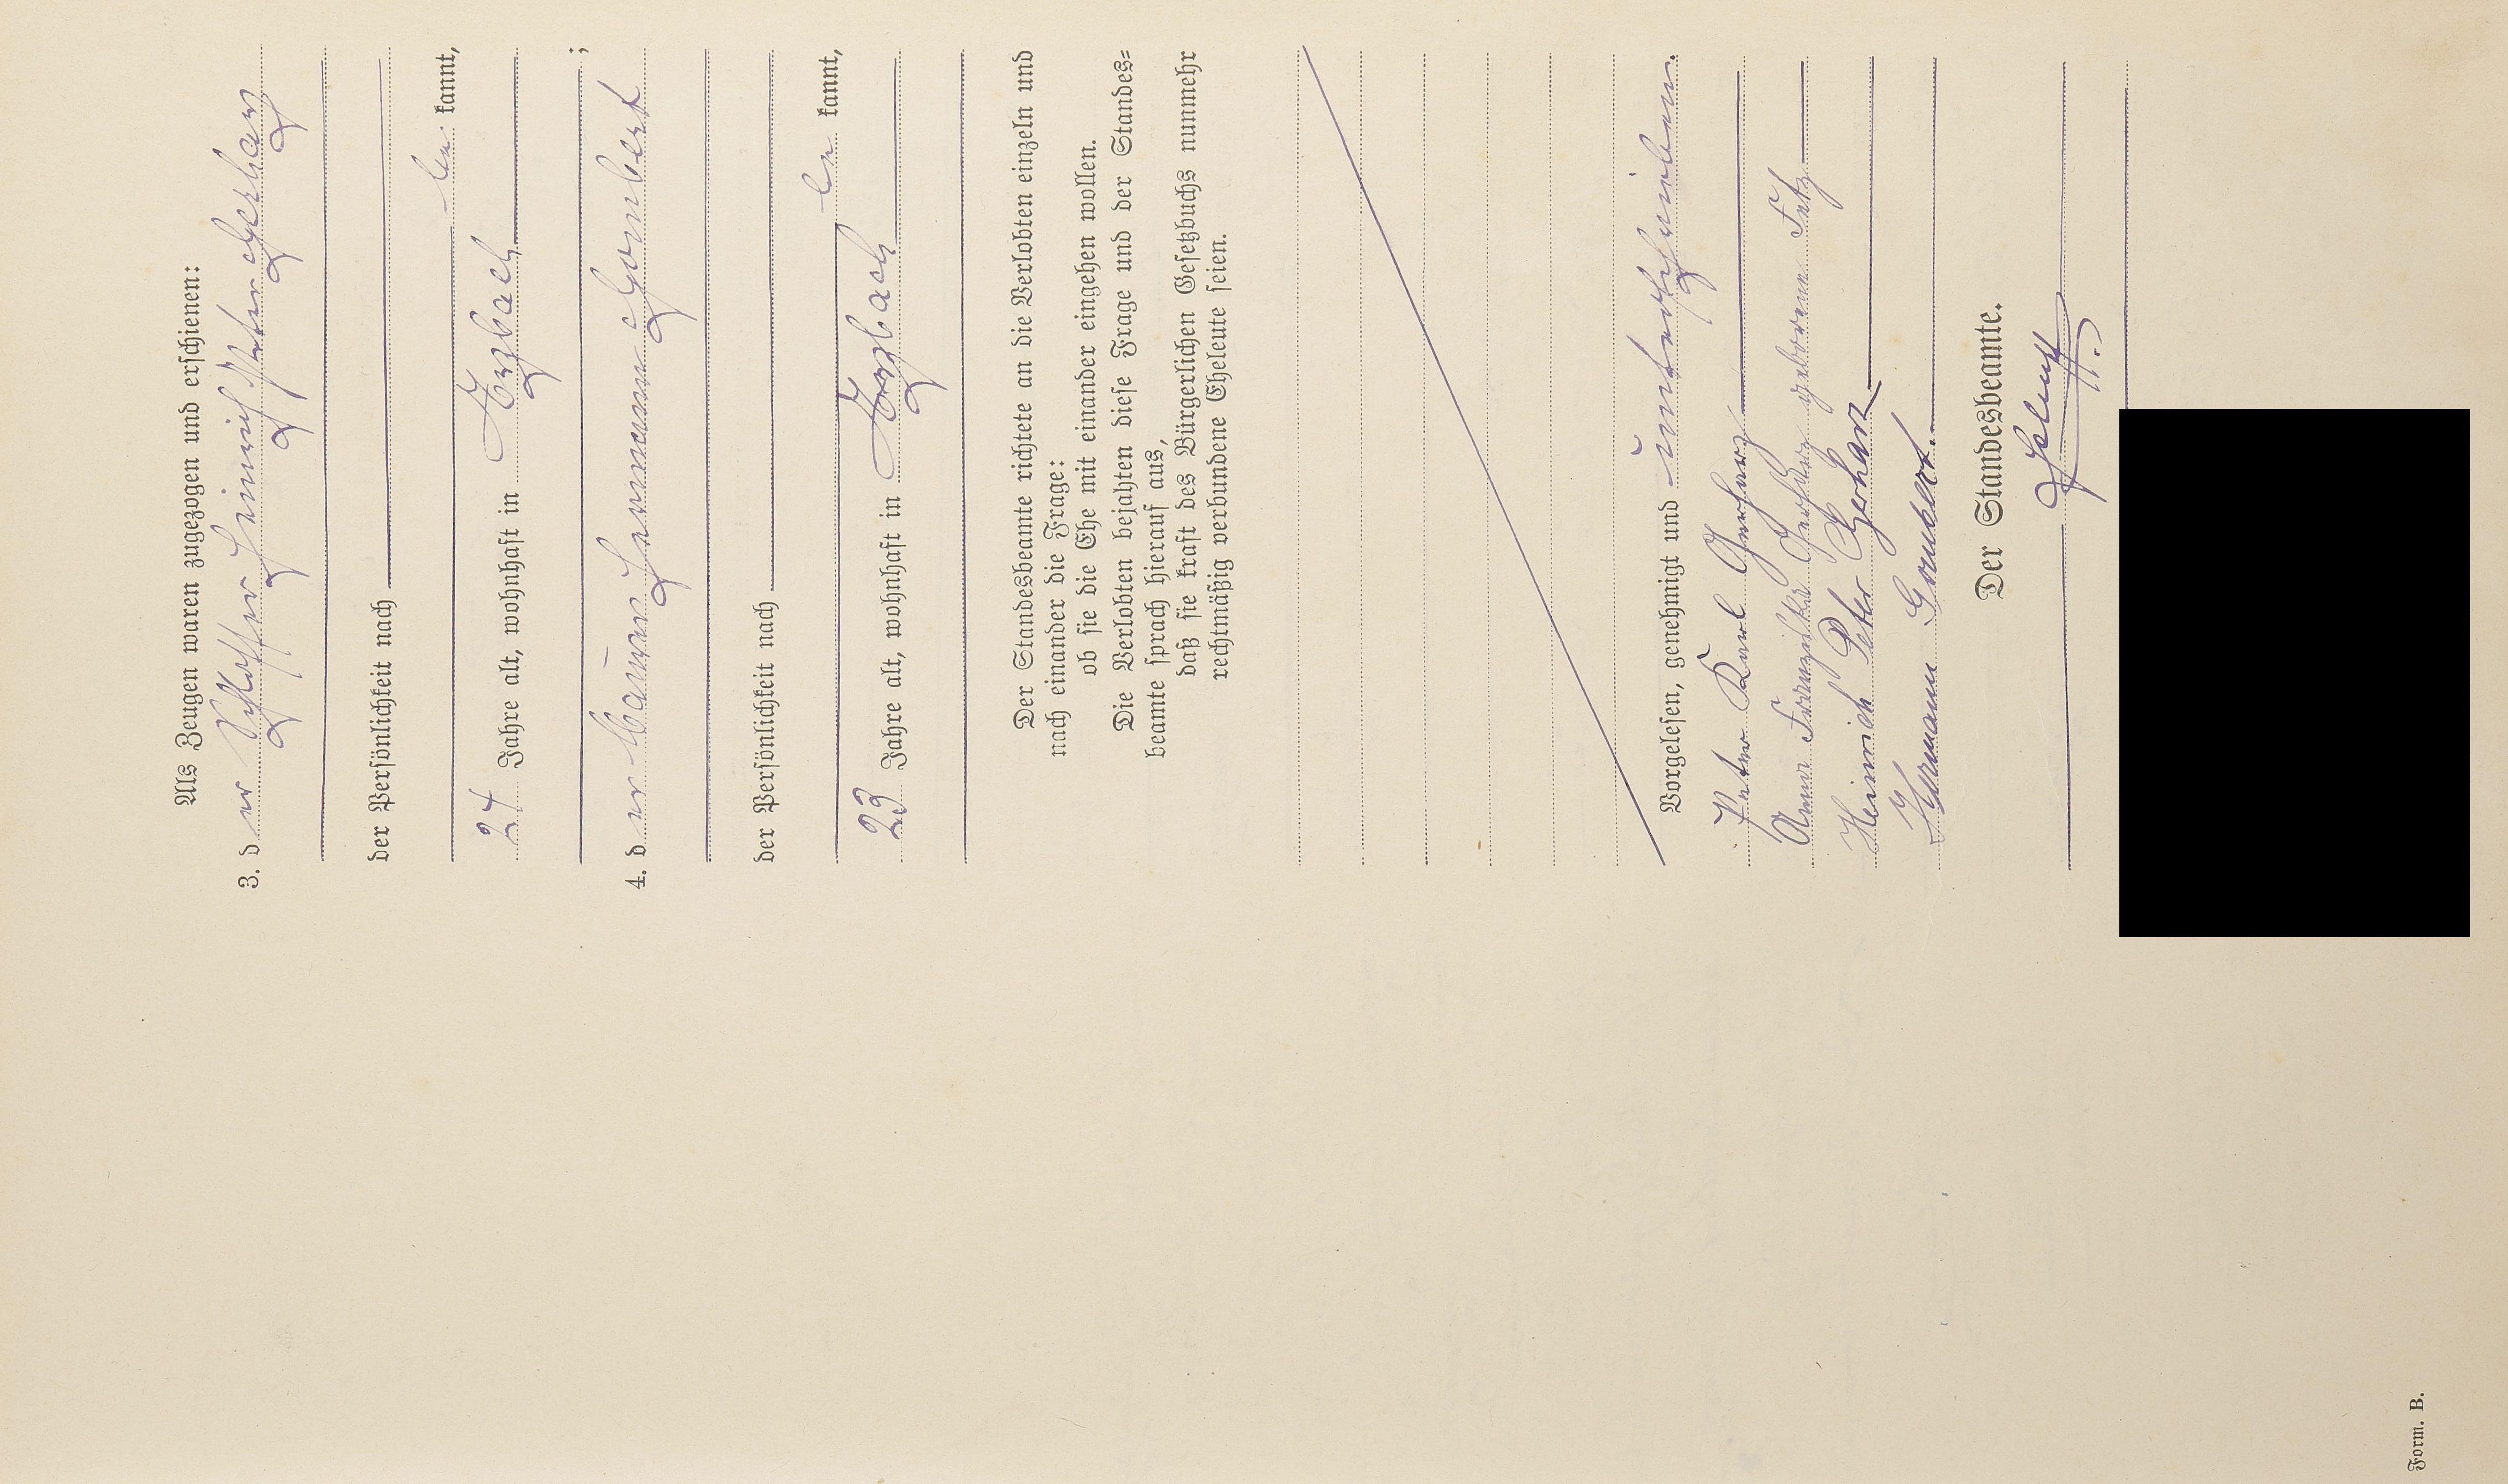 Als Zeugen waren zugezogen und erschienen:
3. der Schlosser Heinrich Peter Gerharz
der Persönlichkeit nach
be kannt,
24 Jahre alt, wohnhaft in Arzbach
;
4. der Bauer Hermann Gombert
der Persönlichkeit nach
be kannt,
23 Jahre alt, wohnhaft in Arzbach
Der Standesbeamte richtete an die Verlobten einzeln und
nach einander die Frage:
ob sie die Ehe mit einander eingehen wollen.
Die Verlobten bejahten diese Frage und der Standes=
beamte sprach hierauf aus,
daß sie kraft des Bürgerlichen Gesetzbuchs nunmehr
rechtmäßig verbundene Eheleute seien.
Vorgelesen, genehmigt und unterschrieben.
Peter Karl Gerharz
Anna Franziska Gerharz geborene
Heinrich Peter Gerharz
Hermann Gombert.
Der Standesbeamte.
Form. B.